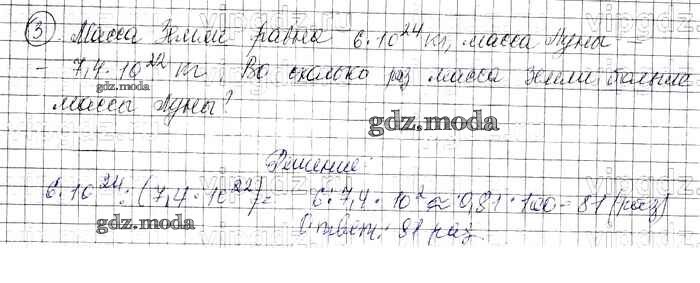 ③. Масса Земли равна 6·10²⁴ кг, масса Луны –
– 7,4·10²² кг. Во сколько раз масса Земли больше
массы Луны?
gdz.moda
gdz.moda
Решение
6·10²⁴:(7,4·10²²)= 6:7,4·10² ≈ 0,81·100=81 (раз)
gdz.moda
Ответ: 81 раз